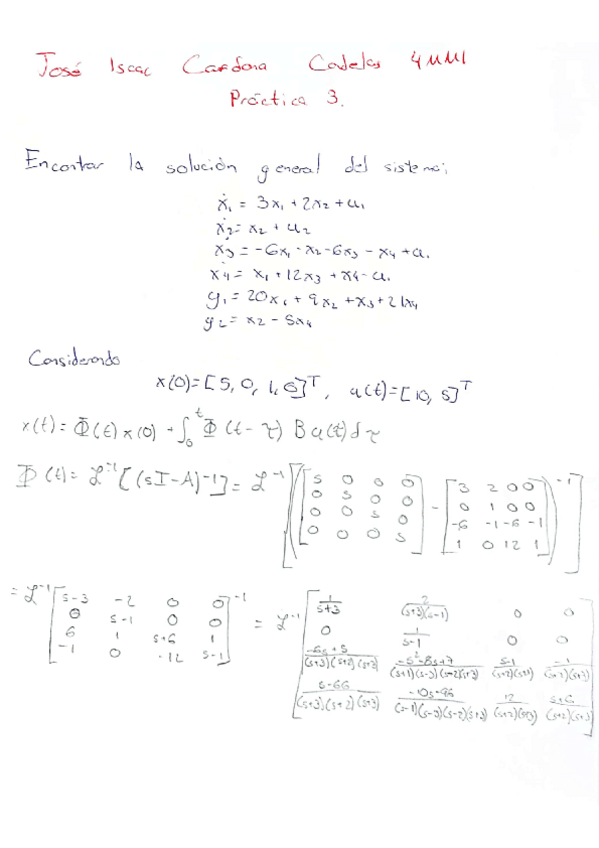 José Isaac Cardona Cadelas 4MM1
Práctica 3.
Encontar la solución general del sistema:
ẋ₁ = 3x₁ + 2x₂ + u₁
ẋ₂ = x₂ + u₂
ẋ₃ = -6x₁ - x₂ - 6x₃ - x₄ + u₁
ẋ₄ = x₁ + 12x₃ + x₄ - u₁
y₁ = 20x₁ + 9x₂ + x₃ + 21x₄
y₂ = x₂ - 5x₄
Considerando
x(0) = [5, 0, 1, 6]ᵀ, u(t) = [10, 5]ᵀ
x(t) = Φ(t) x(0) + ∫₀ᵗ Φ(t-τ) B u(τ) dτ
Φ(t) = ℒ⁻¹[(sI-A)-1] = ℒ⁻¹[([s 0 0 0; 0 s 0 0; 0 0 s 0; 0 0 0 s] - [3 2 0 0; 0 1 0 0; -6 -1 -6 -1; 1 0 12 1])⁻¹]
= ℒ⁻¹[s-3 -2 0 0; 0 s-1 0 0; 6 1 s+6 1; -1 0 -12 s-1]⁻¹ = ℒ⁻¹[1/(s+3) 2/((s+3)(s-1)) 0 0; 0 1/(s-1) 0 0; (-6s+5)/((s+3)(s+2)(s+3)) (-s²-8s+7)/((s+1)(s-3)(s+2)(s+3)) (s-1)/((s+2)(s+3)) -1/((s+2)(s+3)); (s-66)/((s+3)(s+2)(s+3)) (-10s-96)/((s-1)(s-3)(s-2)(s+3)) 12/((s+2)(s+3)) (s+6)/((s+2)(s+3))]